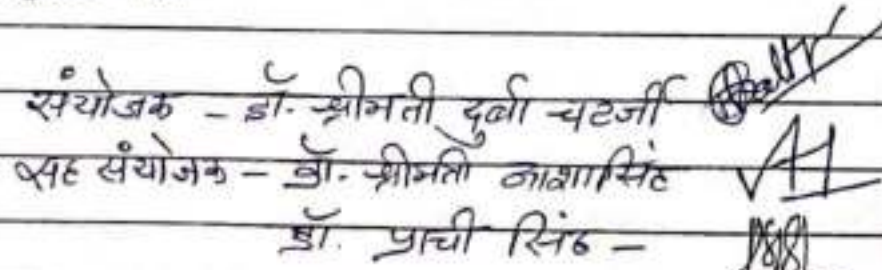 संयोजक - डॉ. श्रीमती दुर्बा चटर्जी
सह संयोजक - डॉ. श्रीमती आशासिंह
डॉ. प्राची सिंह -